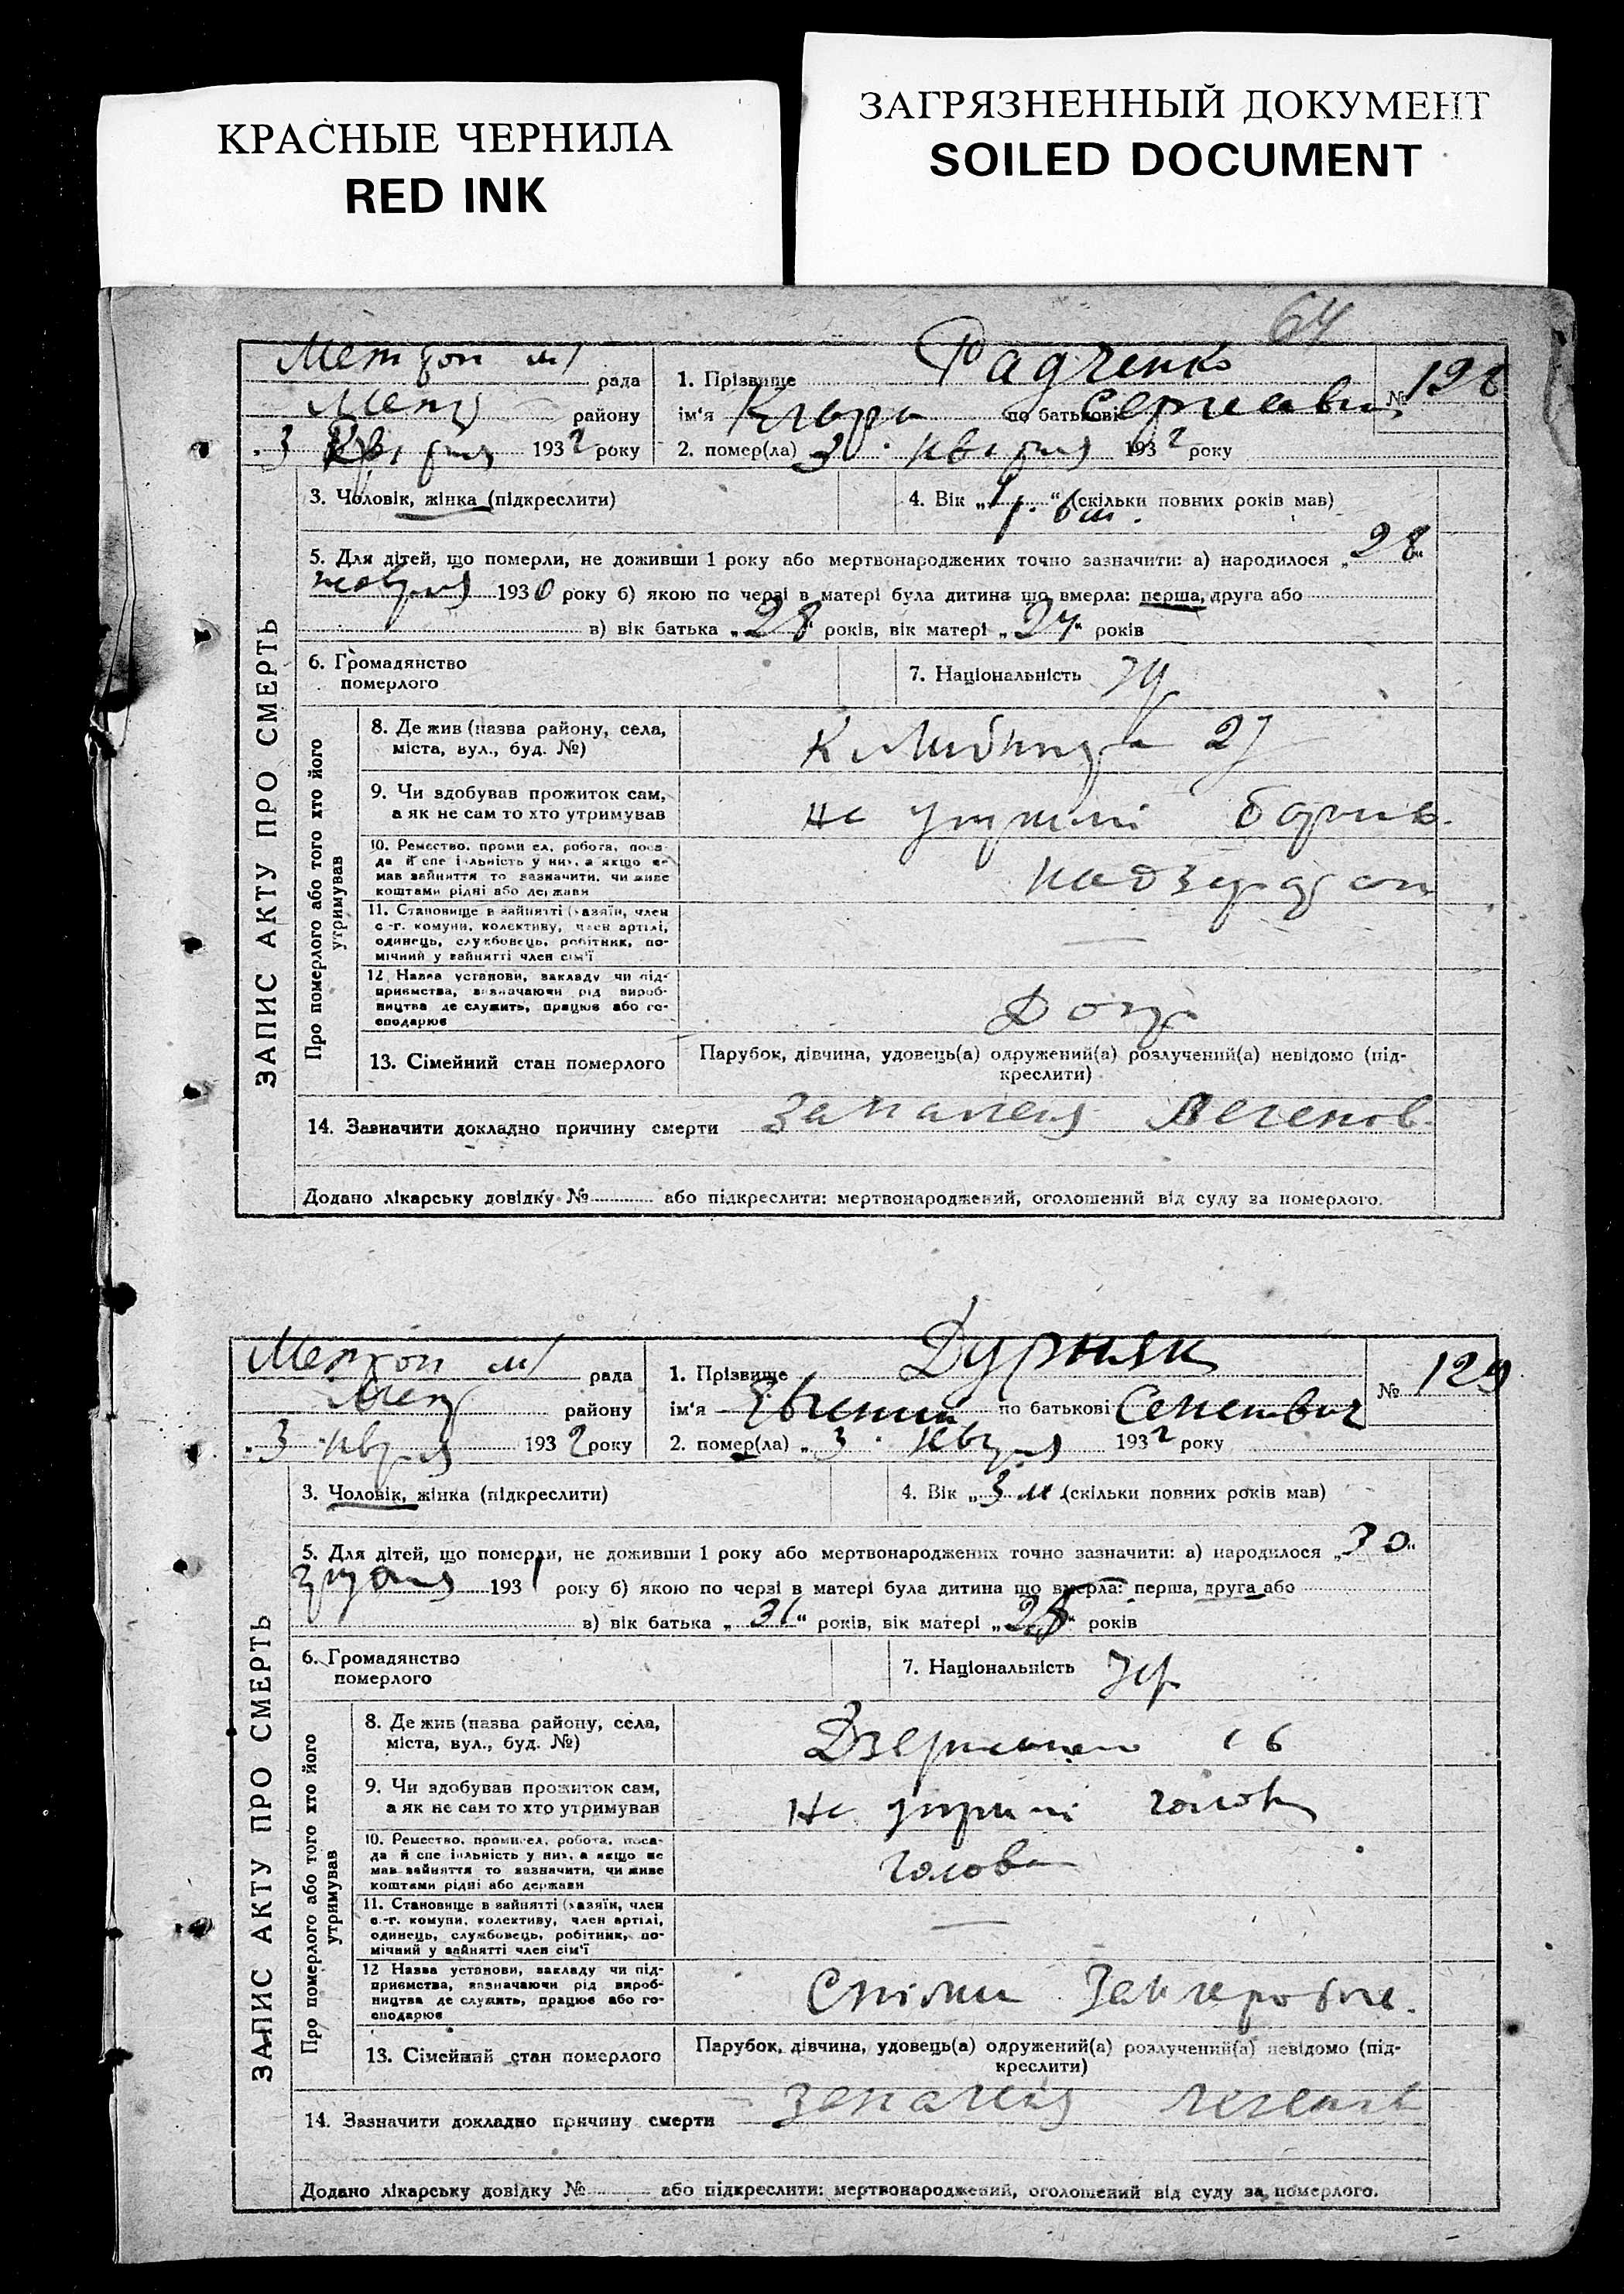 КРАСНЫЕ ЧЕРНИЛА
RED INK
ЗАГРЯЗНЕННЫЙ ДОКУМЕНТ
SOILED DOCUMENT
64
рада
району
3 1932 року
1. Прізвище Радченко
ім'я по батькові
2. помер(ла) 3 квітня 1932 року
№ 128
ЗАПИС АКТУ ПРО СМЕРТЬ
3. Чоловік, жінка (підкреслити)
4. Вік „1 р. 6 м." (скільки повних років мав)
5. Для дітей, що померли, не доживши 1 року або мертвонароджених точно зазначити: а) народилося „28"
жовтня 1930 року б) якою по черзі в матері була дитина що вмерла: перша, друга або
в) вік батька „28" років, вік матері „24" років
6. Громадянство
померлого
7. Національність
Про померлого або того хто його
утримував
8. Де жив (назва району, села,
міста, вул., буд. №)
9. Чи здобував прожиток сам,
а як не сам то хто утримував
не
10. Ремество, промисел, робота, поса-
да й спеціяльність у них, а якщо не
мав зайняття то зазначити, чи живе
коштами рідні або держави
11. Становище в зайнятті (хазяїн, член
с.-г. комуни, колективу, член артілі,
одинець, службовець, робітник, по-
мічний у зайнятті член сім'ї
12 Назва установи, закладу чи під-
приємства, визначаючи рід вироб-
ництва де служить, працює або го-
сподарює
13. Сімейний стан померлого
Парубок, дівчина, удовець(а) одружений(а) розлучений(а) невідомо (під-
креслити)
14. Зазначити докладно причину смерти запаленя легенів
Додано лікарську довідку № або підкреслити: мертвонароджений, оголошений від суду за померлого.
рада
району
3 квітня 1932 року
1. Прізвище Дурняк
ім'я Євгений по батькові Семенович
2. помер(ла) „3 квітня 1932 року
№ 129
ЗАПИС АКТУ ПРО СМЕРТЬ
3. Чоловік, жінка (підкреслити)
4. Вік „3 м (скільки повних років мав)
5. Для дітей, що померли, не доживши 1 року або мертвонароджених точно зазначити: а) народилося „30"
грудня 1931 року б) якою по черзі в матері була дитина що вмерла: перша, друга або
в) вік батька „31" років, вік матері років
6. Громадянство
померлого
7. Національність Укр
Про померлого або того хто його
утримував
8. Де жив (назва району, села,
міста, вул., буд. №)
16
9. Чи здобував прожиток сам,
а як не сам то хто утримував
не
10. Ремество, промисел, робота, поса-
да й спеціяльність у них, а якщо не
мав зайняття то зазначити, чи живе
коштами рідні або держави
голова
11. Становище в зайнятті (хазяїн, член
с.-г. комуни, колективу, член артілі,
одинець, службовець, робітник, по-
мічний у зайнятті член сім'ї
12 Назва установи, закладу чи під-
приємства, визначаючи рід вироб-
ництва де служить, працює або го-
сподарює
13. Сімейний стан померлого
Парубок, дівчина, удовець(а) одружений(а) розлучений(а) невідомо (під-
креслити)
14. Зазначити докладно причину смерти запаленя легенів
Додано лікарську довідку № або підкреслити: мертвонароджений, оголошений від суду за померлого.